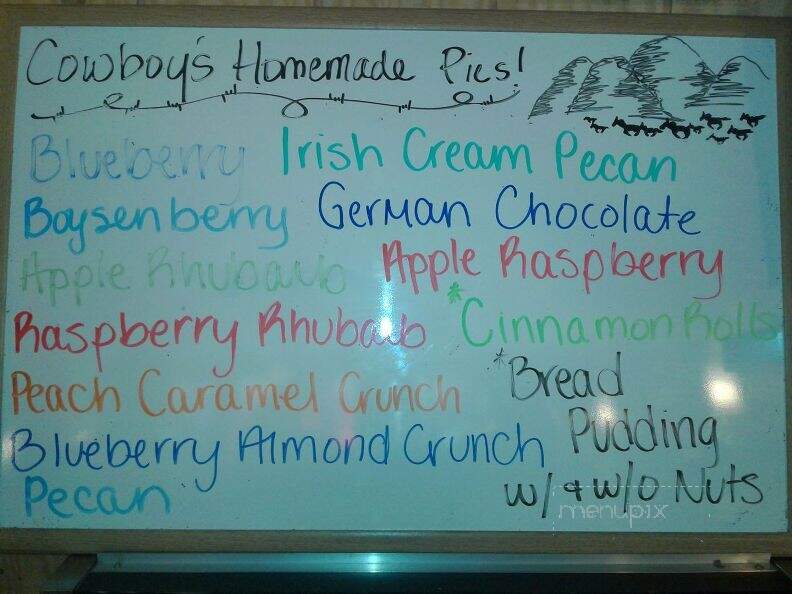 Cowboy's Homemade Pies!
Blueberry Irish Cream Pecan
Boysenberry German Chocolate
Apple Rhubarb Apple Raspberry
Raspberry Rhubarb *Cinnamon Rolls
Peach Caramel Crunch *Bread
Blueberry Almond Crunch Pudding
Pecan w/ & w/o Nuts
menupix